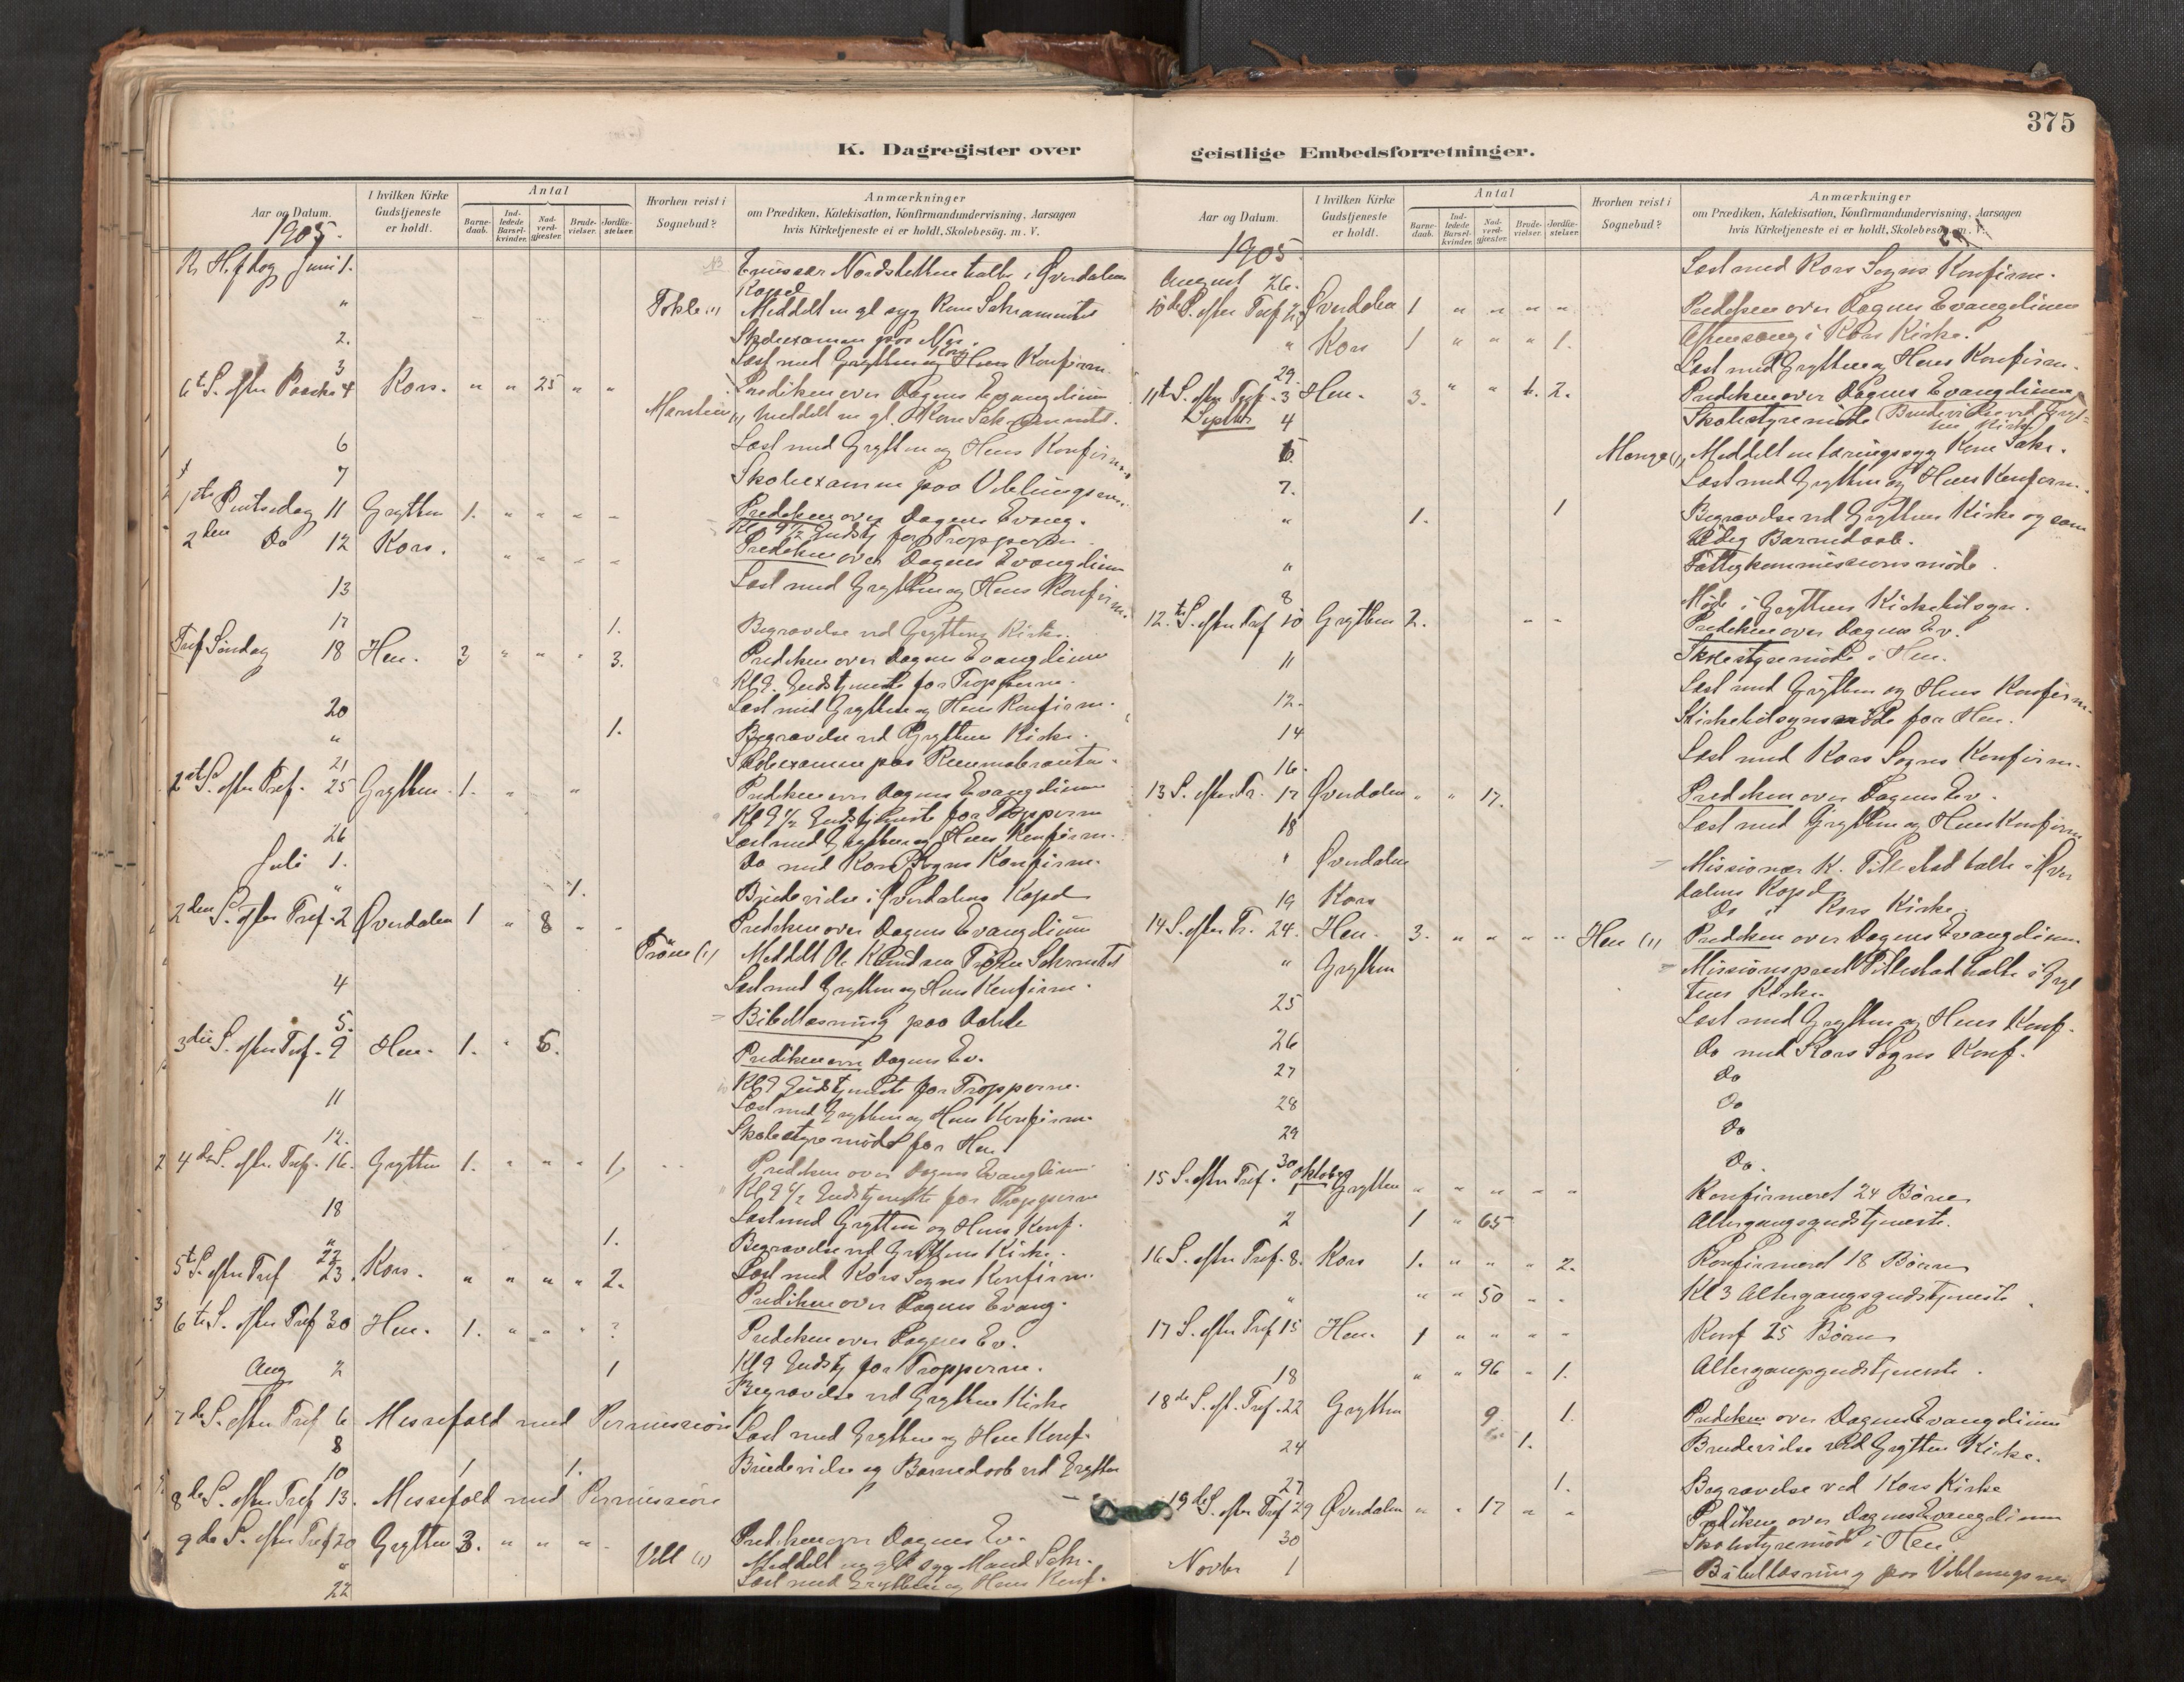 375
K. Dagregister over
Aar og Datum.
I hvilken Kirke Gudstjeneste er holdt.
Antal
Barnedaab.
Indledede Barselkvinder.
Nadverdgjester.
Brudevielser.
Jordfæstelser.
Hvorhen reist i Sognebud?
Anmærkninger
om Præediken, Katekisation, Konfirmandundervisning, Aarsagen
hvis Kirketjeneste ei er holdt, Skolebesög. m. V.
1905.
Juni 1. Nordsletten talte i Øverdalen
Kapel
" Meddelt en gl syg Kone Sakramentet
2. Skoleexamen paa
3 Læst med Grytten og Hens Konfirm.
6te S. efter Paaske 4 Kors. " " 25 " " Prediken over Dagens Evangelium
Marstein (1) Meddelt en gl. Kone Sakramentet.
6 Læst med Grytten og Hens Konfirm
7 Skoleexamen paa Veblungsnes.
1ste Pintsedag 11 Grytten 1. " " " " Prediken over Dagens Evang.
Kl 9 1/2 Gudstj for Tropperne
2den Do 12 Kors. " " " " Prediken over Dagens Evangelium
13 Læst med Grytten og Hens Konfirm.
17 1. Begravelse ved Gryttens Kirke.
Tref Søndag 18 Hen. 3 " " " 3. Prediken over Dagens Evangelium
Kl 9. Gudstjeneste for Tropperne.
20 Læst med Grytten og Hens Konfirm.
" 1. Begravelse ved Grytten Kirke.
21 Skoleexamen paa
25 Grytten. 1. " " Prediken over Dagens Evangelium
Kl 9 1/2 Gudstjeneste for Tropperne
26 Læst med Grytten og Hens Konfirm.
Juli 1. Do med Kors Sogns Konfirm.
" 1. Brudevielse i Øverdalens Kapel
2den S. efter Tref. 2 Øverdalen 1 " 8 " " Prediken over Dagens Evangelium
(1) Meddelt
4 Læst med Grytten og Hens Konfirm.
5. Bibellæsning paa
3die S. efter Tref. 9 Hen. 1. " 6. Prediken over Dagens Ev.
Kl 9 Gudstjeneste for Tropperne.
11 Læst med Grytten og Hens Konfirm.
12. Skolestyremøde for Hen
4de S. efter Tref. 16. Grytten 1. " " " 1, Prediken over Dagens Evangelium
Kl 9 1/2 Gudstjeneste for Tropperne
18 Læst med Grytten og Hens Konf.
" 1. Begravelse ved Gryttens Kirke.
22 Læst med Kors Sogns Konfirm.
5te S. efter Tref 23. Kors. " " " " 2. Prediken over Dagens Evang.
6te S. efter Tref 30 Hen. 1. " " " ? Prediken over Dagens Ev.
Kl 9 Gudstj for Tropperne.
Aug 2 1 Begravelse ved Grytten Kirke
7de S. efter Tref 6 Messefald med Permission
8 Læst med Grytten og Hen Konf.
10 1 1. Brudevielse og Barnedaab ved Grytten
8de S. efter Tref 13. Messefald med Permission
9de S. efter Tref 20 Grytten 3. " " " " Prediken over Dagens Ev.
" (1) Meddelt en gl syg Mand Sakr.
22 Læst med Grytten og Hens Konf.
geistlige Embedsforretninger.
Aar og Datum.
I hvilken Kirke Gudstjeneste er holdt.
Antal
Barnedaab.
Indledede Barselkvinder.
Nadverdgjester.
Brudevielser.
Jordfæstelser.
Hvorhen reist i Sognebud?
Anmærkninger
om Præediken, Katekisation, Konfirmandundervisning, Aarsagen
hvis Kirketjeneste ei er holdt, Skolebesög. m. V.
1905.
August 26. Læst med Kors Sogns Konfirm.
10de S. efter Tref 27 Øverdalen 1 " " " " Prediken over Dagens Evangelium
" Kors 1 " " " 1. Aftensang i Kors Kirke.
29. Læst med Grytten og Hens Konfirm.
11te S. efter Tref. 3 Hen. 3. " " 2. Prediken over Dagens Evangelium
Septbr 4 Skolestyremøde (Brudevielse ved Grytten Kirke)
6. (1) Meddelt en tæringssyg Kone Sakr.
7. Læst med Grytten og Hens Konfirm.
" 1. 1 Begravelse ved Gryttens Kirke og sam
tidig Barnedaab.
" Fattigkommissionsmøde.
8 Møde i Gryttens Kirketilsyn.
12te S. efter Tref 10 Grytten 2. " " Prediken over Dagens Ev.
11 Skolestyremøde i Hen.
12. Læst med Grytten og Hens Konfirm.
14 Kirketilsynsmøde for Hen.
16. Læst med Kors Sogns Konfirm.
13 S. efter Tr. 17 Øverdalen " " 17. Prediken over Dagens Ev.
18 Læst med Grytten og Hens Konfirm
" Øverdalen Missionær K. Titlestad talte i Øver
dalens Kapel
19 Kors Do i Kors Kirke.
14 S. efter Tr. 24. Hen. 3. " " " " Hen (1) Prediken over Dagens Evangelium
" Grytten Missionsprest Titlestad talte i Gryt
tens Kirke.
25 Læst med Grytten og Hens Konf.
26 Do med Kors Sogns Konf.
27 Do
28 Do
29 Do
30 Do.
15 S. efter Tref. Oktober 1 Grytten " " " " " Konfirmeret 24 Børn
2 1 " 65 Altergangsgudstjeneste.
16 S. efter Tref. 8. Kors 1. " " " 2. Konfirmeret 18 Børn
" " " 50 " " Kl 3 Altergangsgudstjeneste.
17 S. efter Tref 15 Hen. 1 " " " " Konf 25 Børn
18 " " 96 " 1. Altergangsgudstjeneste.
18de S. eft. Tref. 22 Grytten 9 1. Prediken over Dagens Evangelium
24 1. Brudevielse ved Grytten Kirke.
27 1. Begravelse ved Kors Kirke
19de S. efter Tref 29 Øverdalen " " 17 " " Prediken over Dagens Evangelium
30 Skolestyremøde i Hen
Novbr 1 Bibellæsning paa Veblungsnes